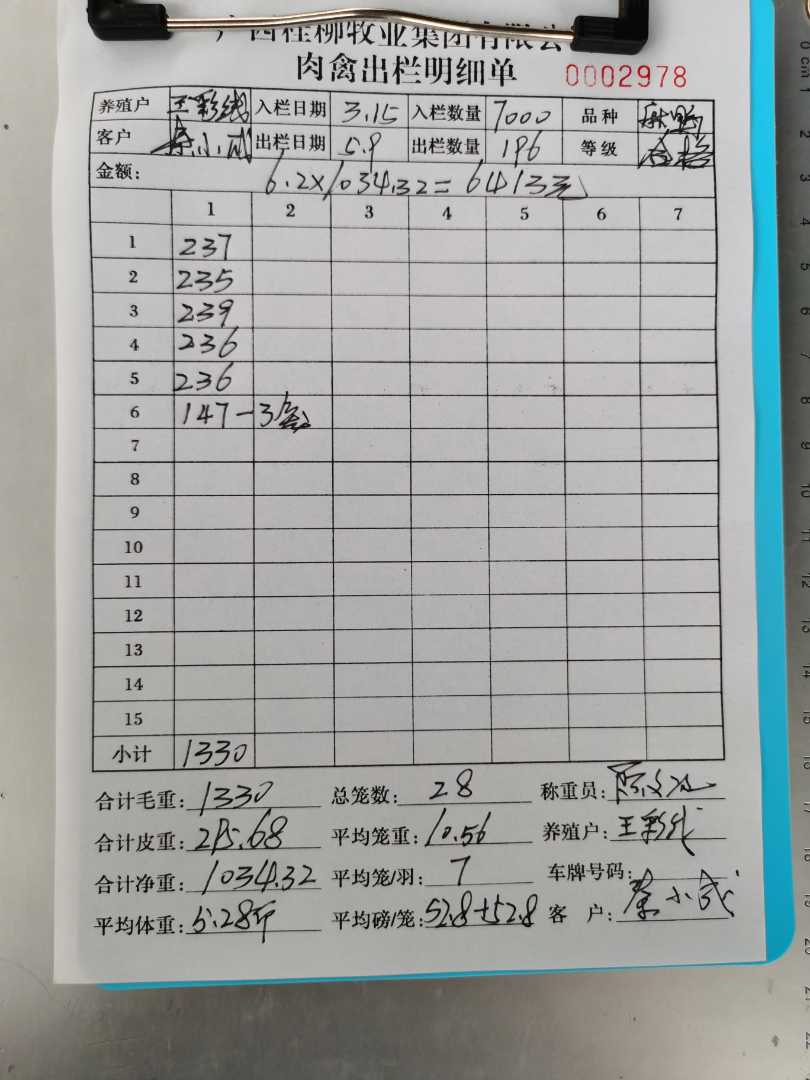 广西桂柳牧业集团有限公
肉禽出栏明细单 0002978
养殖户 王彩线 入栏日期 3.15 入栏数量 7000 品种
客户 秦小成 出栏日期 5.9 出栏数量 196 等级 合格
金额: 6.2×1034.32=6413元
1 2 3 4 5 6 7
1 237
2 235
3 239
4 236
5 236
6 147-3笼
7
8
9
10
11
12
13
14
15
小计 1330
合计毛重: 1330 总笼数: 28 称重员:
合计皮重: 295.68 平均笼重: 10.56 养殖户: 王彩线
合计净重: 1034.32 平均笼/羽: 7 车牌号码:
平均体重: 5.28斤 平均磅/笼: 52.8+52.8 客 户: 秦小成
0 cm 1 2 3 4 5 6 7 8 9 10 11 12 13 14 15 17 18 20 21 22